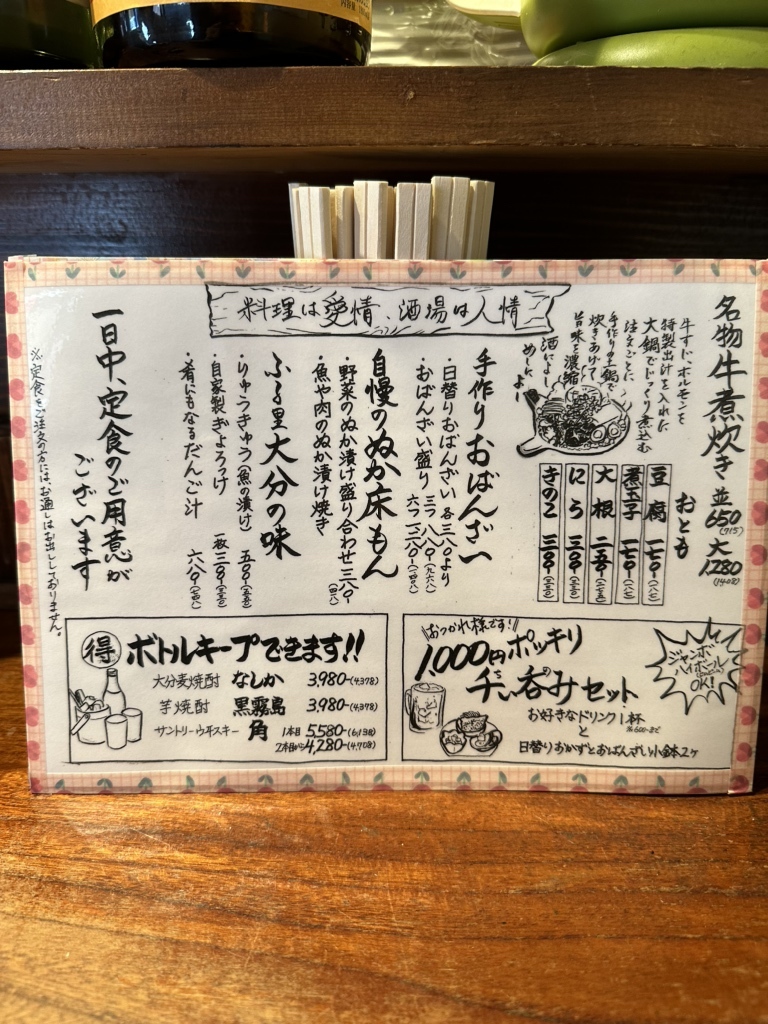 料理は愛情、酒場は人情
名物牛煮炊き
並650(715)
大1280(1408)
牛すじ、ホルモンを
特製出汁を入れた
大鍋でじっくり煮込む
注文ごとに
手作り豆鍋で
炊きあげて
旨味を濃縮
酒によし
めしによし
おとも
豆腐 一七〇-(一八七)
煮玉子 一七〇-(一八七)
大根 二五〇-(二七五)
にら 三〇〇-(三三〇)
きのこ 三〇〇-(三三〇)
手作りおばんざい
・日替りおばんざい 各三八〇より
・おばんざい盛り 三つ 八八〇-(九六八)
六つ 一三八〇-
自慢のぬか床もん
・野菜のぬか漬け盛り合わせ 三八〇-(四一八)
・魚や肉のぬか漬け焼き
ふる里大分の味
・りゅうきゅう(魚の漬け) 五〇〇-(五五〇)
・自家製ぎょろっけ 一枚三〇〇-(三三〇)
・肴にもなるだんご汁 六八〇-(七四八)
一日中、定食のご用意が
ございます
※定食をご注文の方には、お通しはお出ししておりません。
得 ボトルキープできます!!
大分麦焼酎 なしか 3,980-(4,378)
芋焼酎 黒霧島 3,980-(4,378)
サントリーウイスキー 角 1本目 5,580-(6,138)
2本目から 4,280-(4,708)
おつかれ様です!!
1,000円ポッキリ
チョイ呑みセット
ジャンボ
ハイボール
OK!
お好きなドリンク1杯
※600-まで
と
日替りおかずとおばんざい小鉢2ヶ